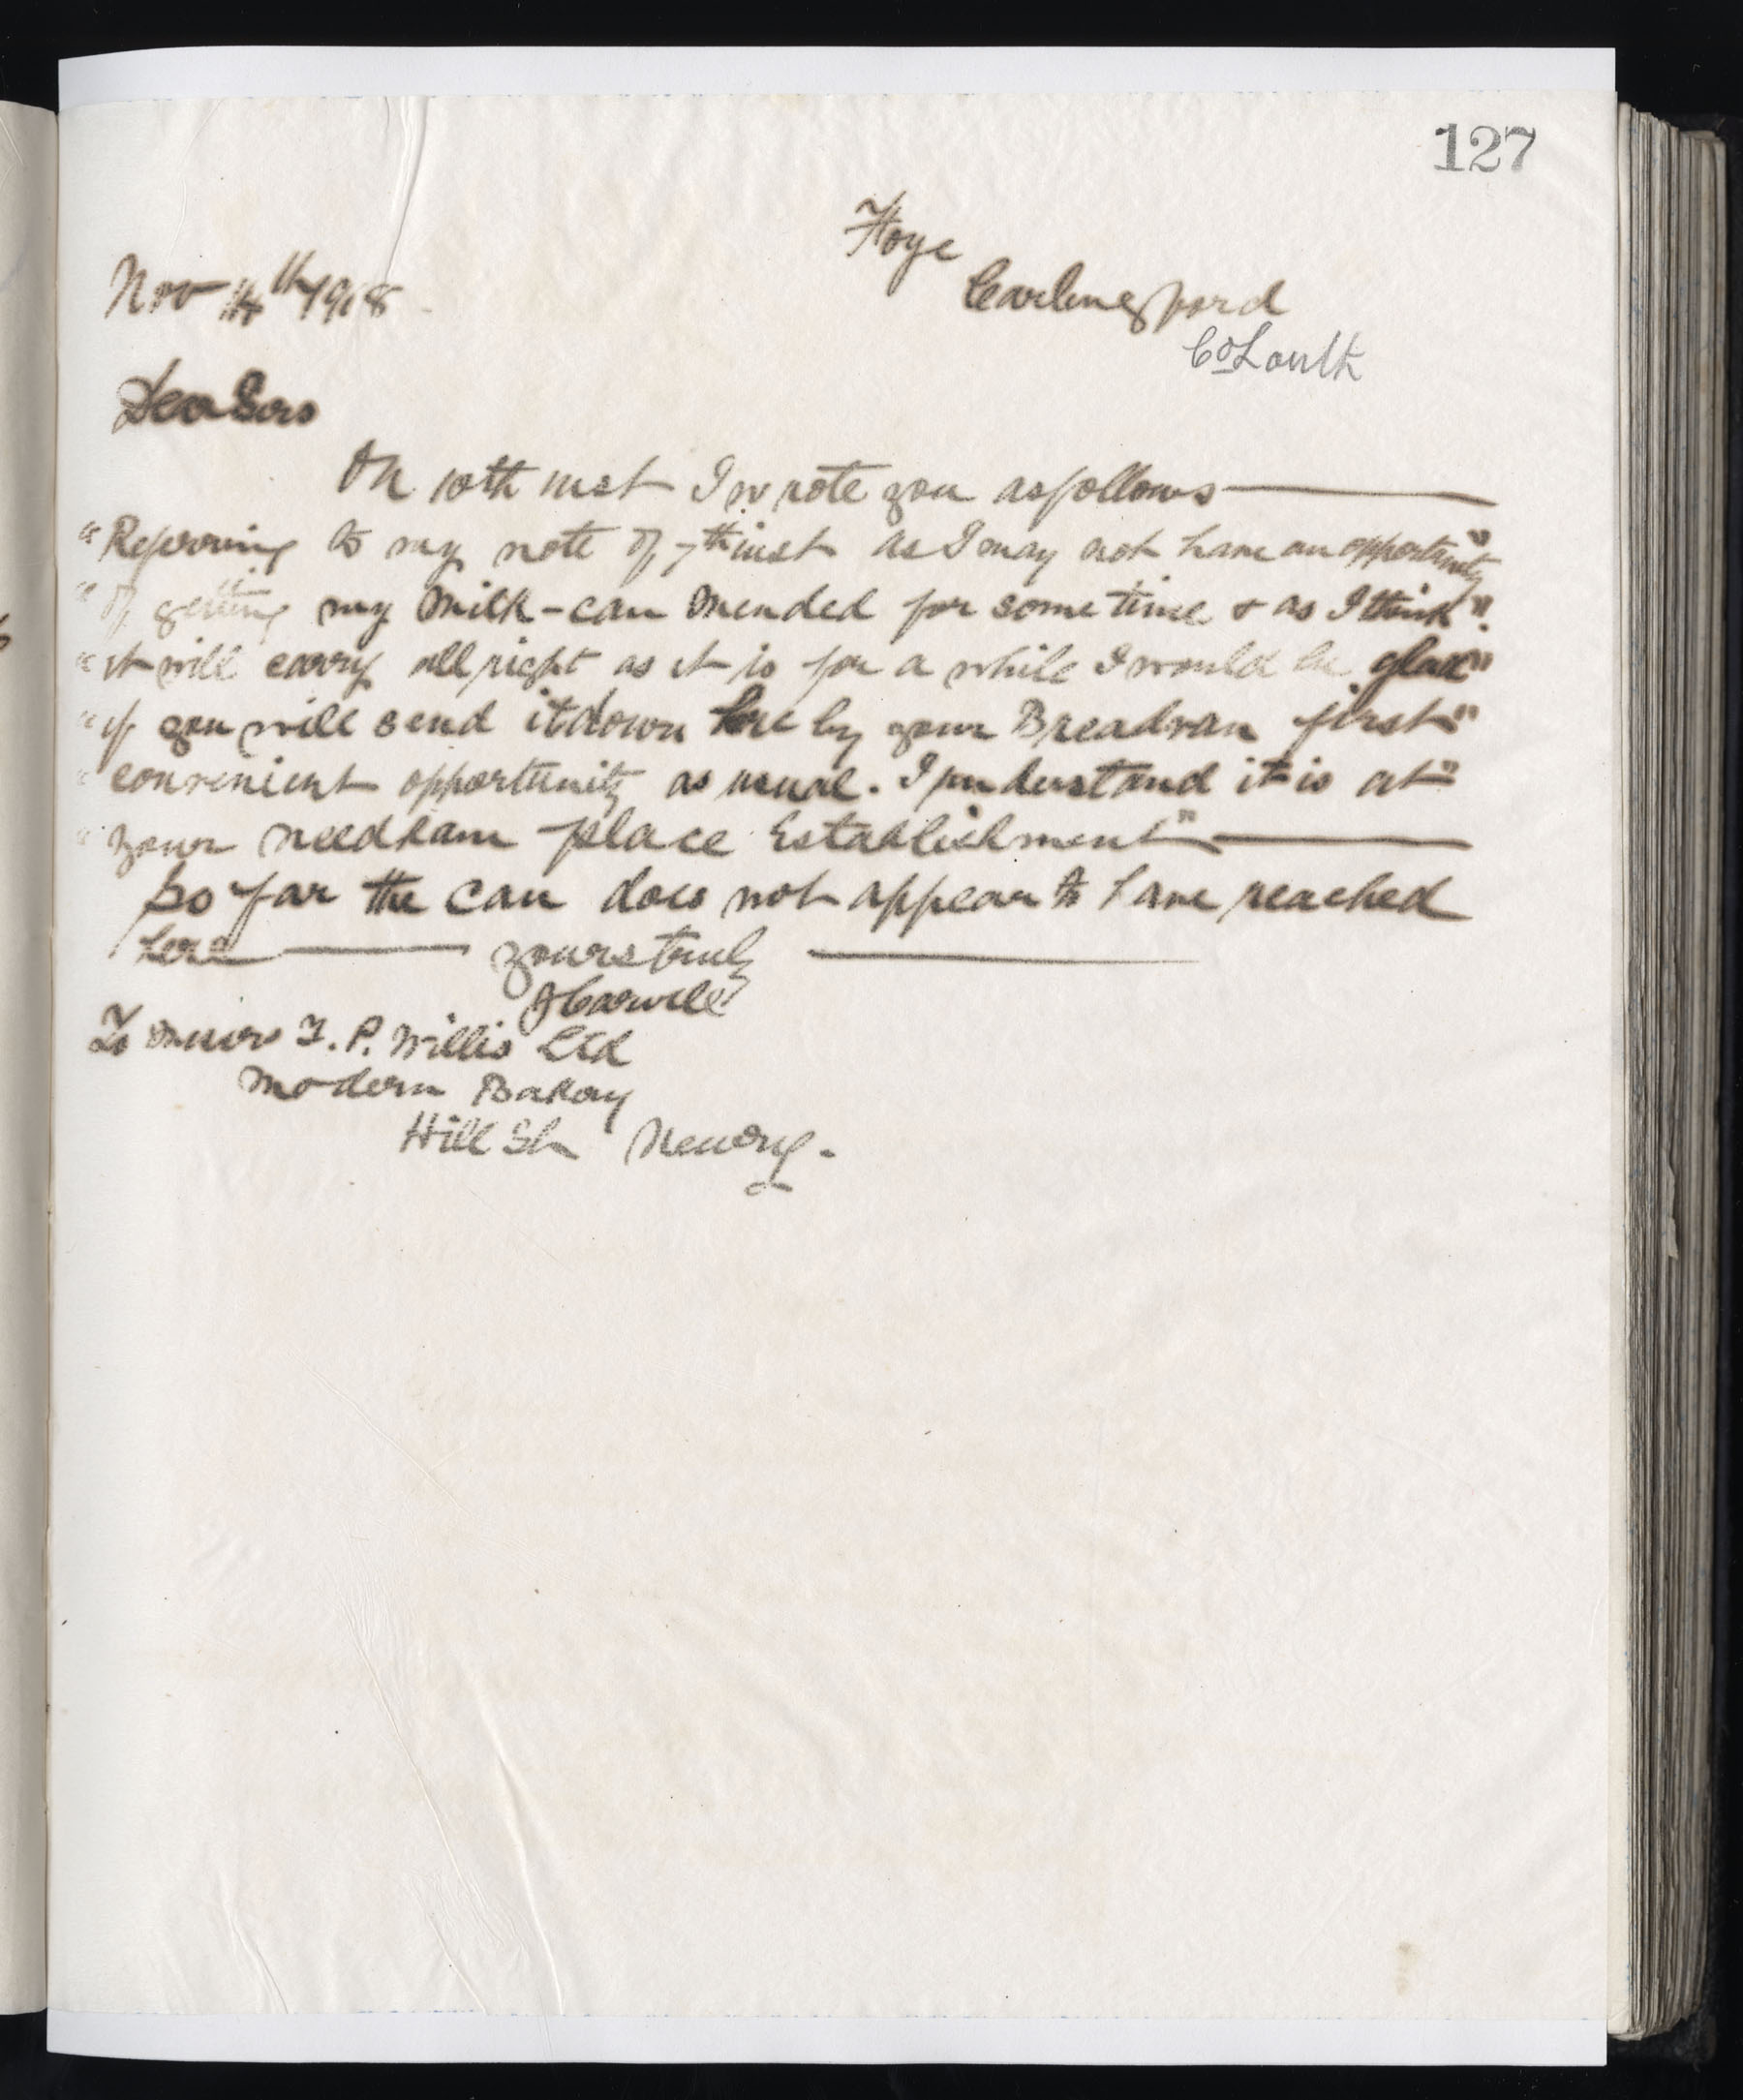 127
Foye
Nov 14th 1918
Carlingford
Co Louth
Dear Sirs
On 10th inst I wrote you as follows
"Referring to my note of 7th inst as I may not have an opportunity"
"of getting my Milk-can mended for some time & as I think".
"it will carry all right as it is for a while I would be glad"
"if you will send it down here by your Breadvan first"
"convenient opportunity as usual. I understand it is at"
"your Needham place Establishment"
So far the can does not appear to have reached
here yours truly
To Messrs T. P. Willis Ltd
Modern Bakery
Hill St Newry.